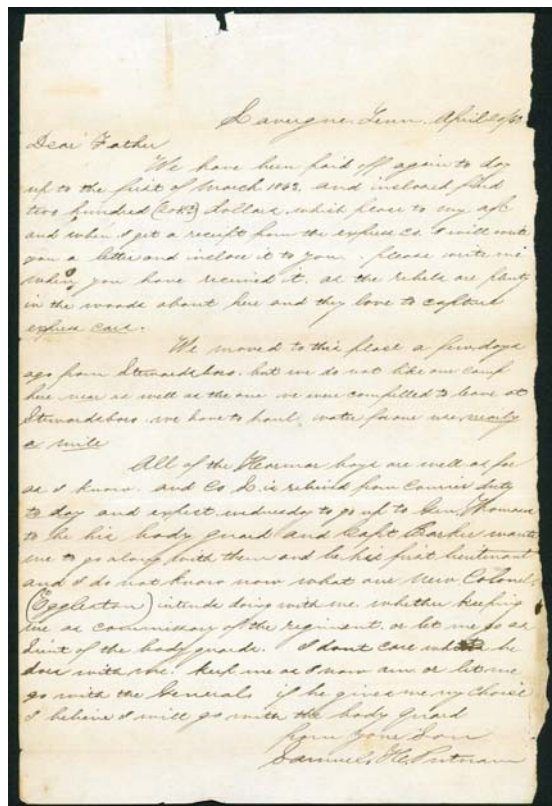 Lavergne, Tenn. April 20/63
Dear Father
We have been paid off again to day
up to the first of March 1863, and inclosed find
two hundred dollars which place to my act
and when I get a receipt from the express Co. I will write
you a letter and inclose it to you. please write me
when you have received it. as the rebels are plenty
in the woods about here and they love to capture
express cars.
We moved to this place a few days
ago from Stewardsboro. but we do not like our camp
here near as well as the one we were compelled to leave at
Stewardsboro we have to haul water for our use nearly
a mile
All of the Harmar boys are well as far
as I know. and Co L. is relieved from Courier duty
to day and expect wednesday to go up to Gen. Thomases
to be his body guard and Capt Barker wants
me to go along with them and be his first lieutenant
and I do not know now what our New Colonel
(Egglerton) intends doing with me. whether keeping
me as commissary of the regiment. or let me go as
Lieut of the body guards. I dont care what he
does with me. keep me as I now am. or let me
go with the General. if he gives me my choise
I believe I will go with the body guard
from your Son
Samuel H. Putnam